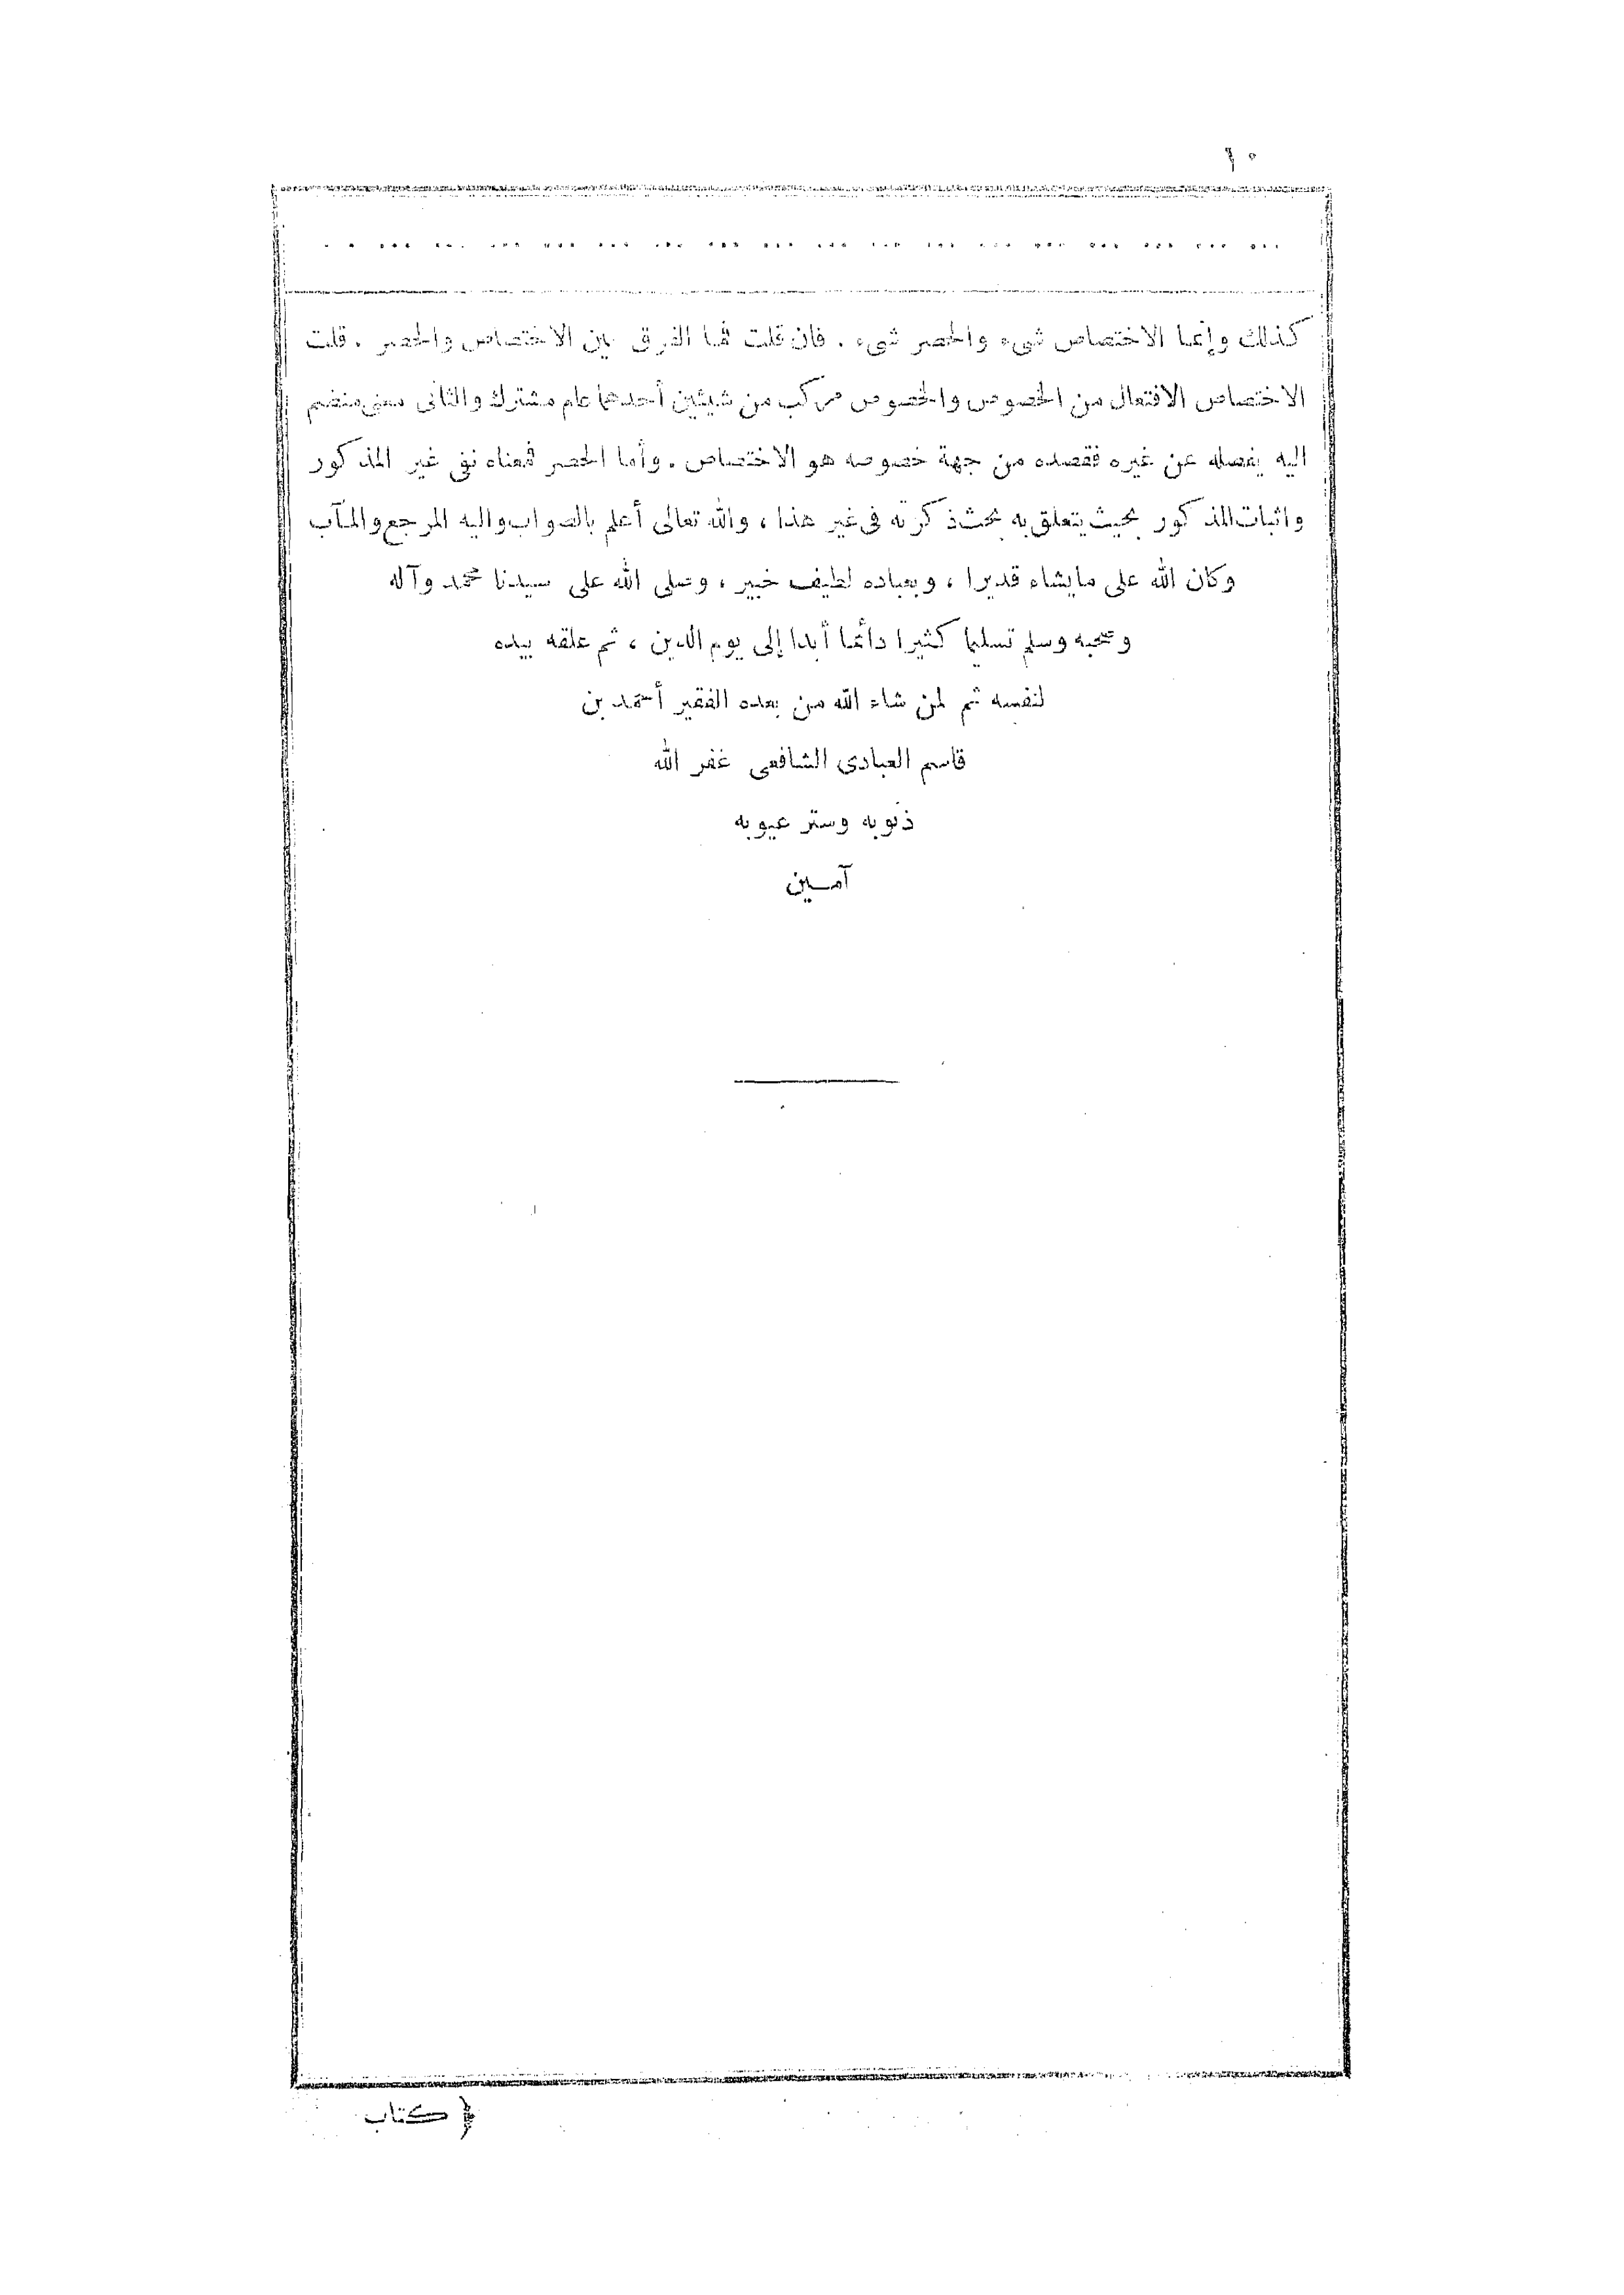 ٦٠
كذلك وإنما الاختصاص شىء والحصر شىء . فان قلت فما الفرق بين الاختصاص والحصر . قلت
الاختصاص الافتعال من الخصوص والخصوص مركب من شيئين أحدهما عام مشترك والثانى معنى منضم
اليه يفصله عن غيره فقصده من جهة خصوصه هو الاختصاص . وأما الحصر فمعناه نفى غير المذكور
واثبات المذكور بحيث يتعلق به بحث ذكرته فى غير هذا ، والله تعالى أعلم بالصواب واليه المرجع والمآب
وكان الله على مايشاء قديرا ، وبعباده لطيف خبير ، وصلى الله على سيدنا محمد وآله
وصحبه وسلم تسليما كثيرا دائما أبدا إلى يوم الدين ، ثم علقه بيده
لنفسه ثم لمن شاء الله من بعده الفقير أحمد بن
قاسم العبادى الشافعى غفر الله
ذنوبه وستر عيوبه
آمين
كتاب